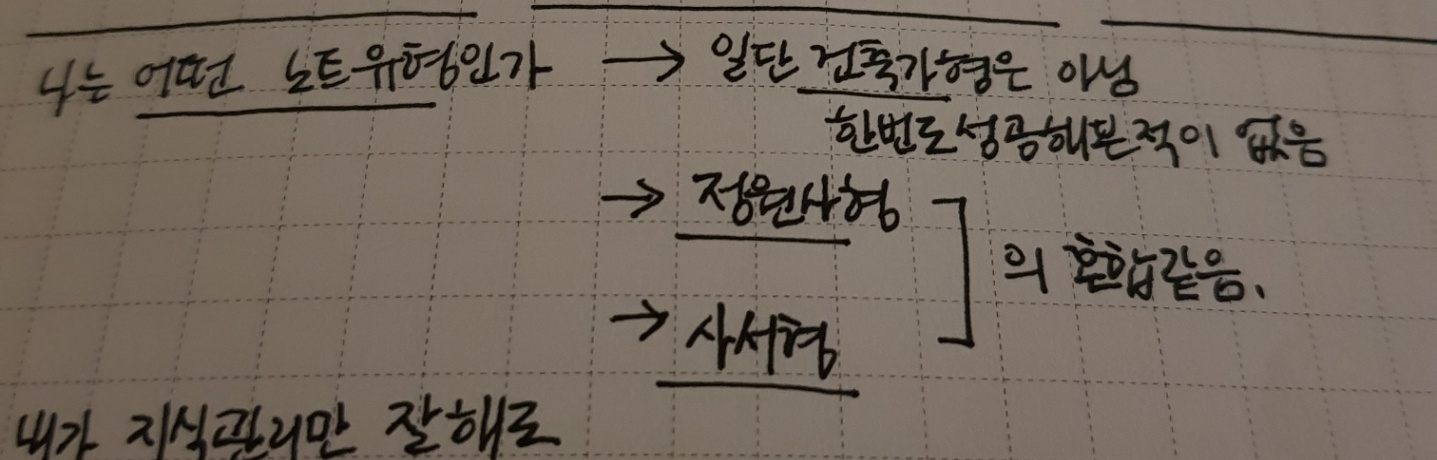 나는 어떤 노트유형인가 → 일단 건축가형은 아님
한번도 성공해본적이 없음
→ 정원사형
의 혼합같음.
→ 사서형
내가 지식관리만 잘해도